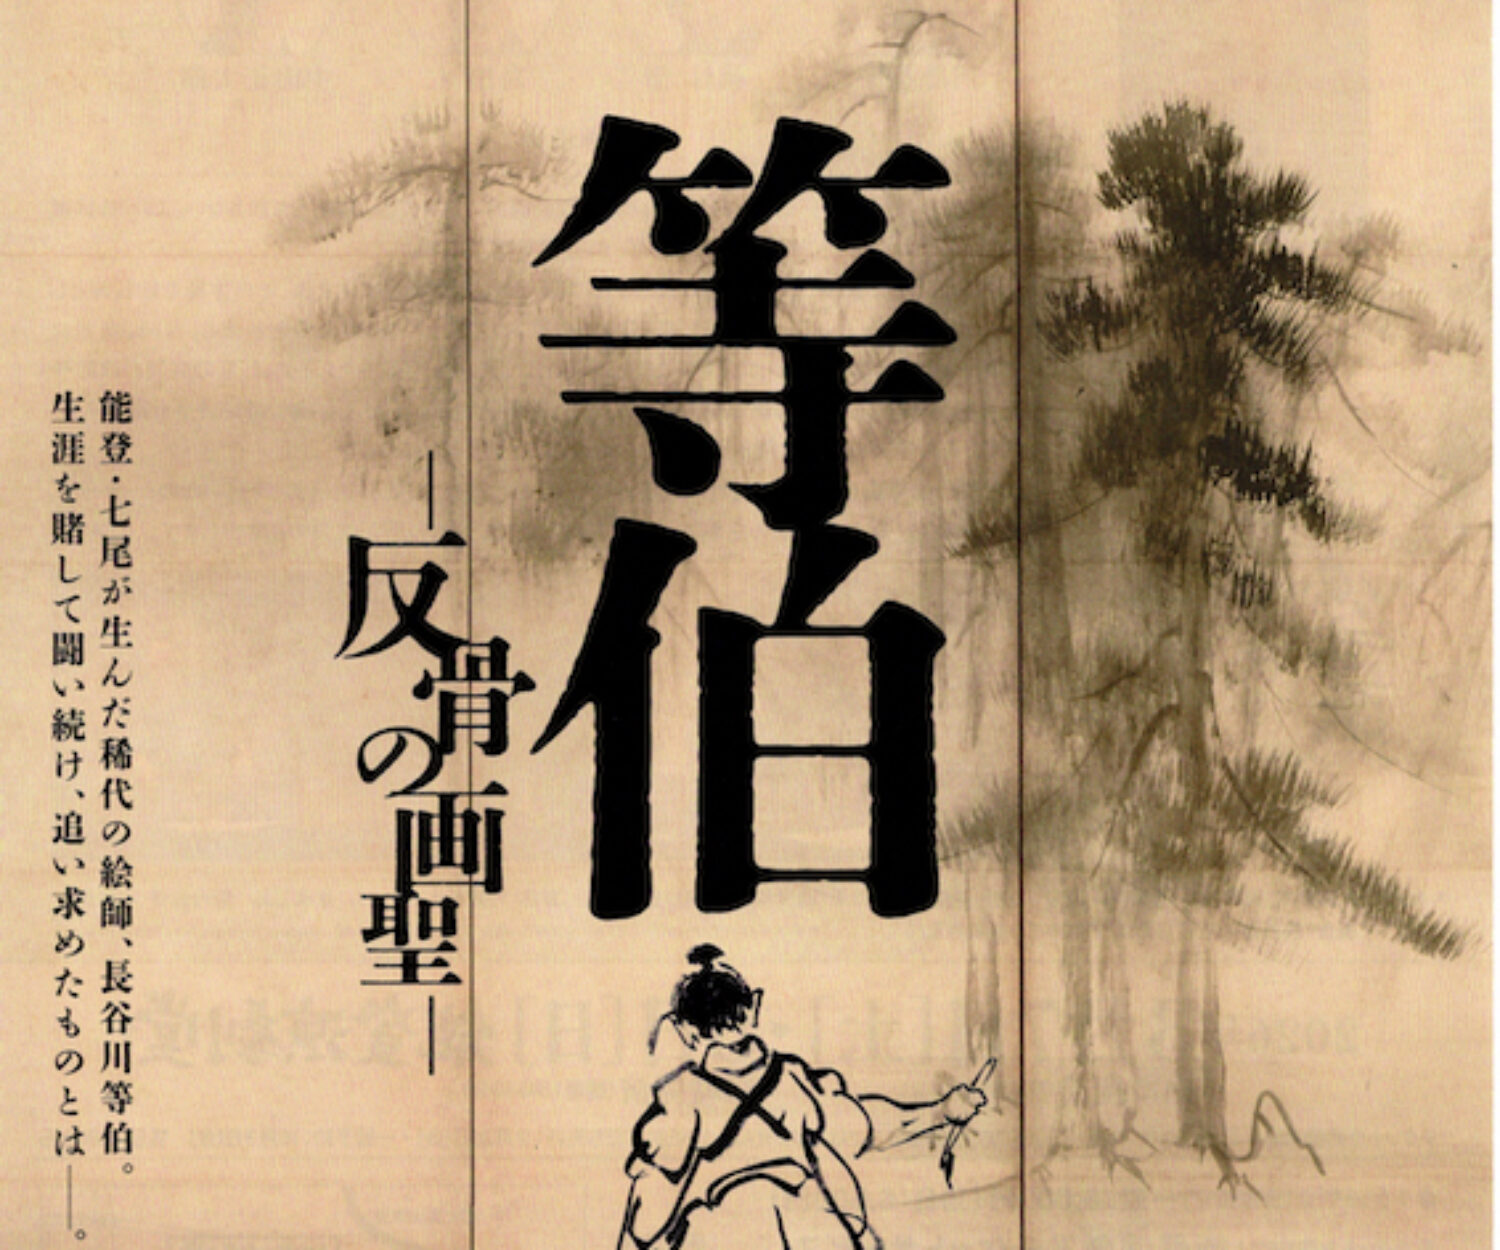 等伯
―反骨の画聖―
能登・七尾が生んだ稀代の絵師、長谷川等伯。
生涯を賭して闘い続け、追い求めたものとは――。